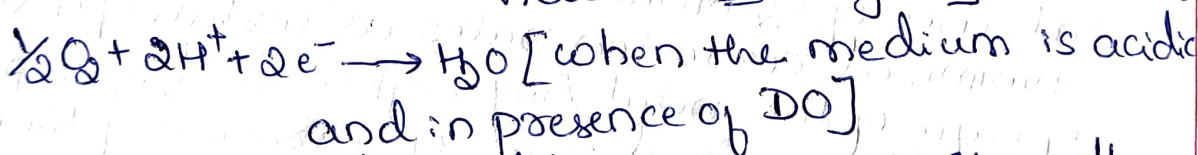 ½O₂ + 2H⁺ + 2e⁻ → H₂O [when the medium is acidic
and in presence of DO]